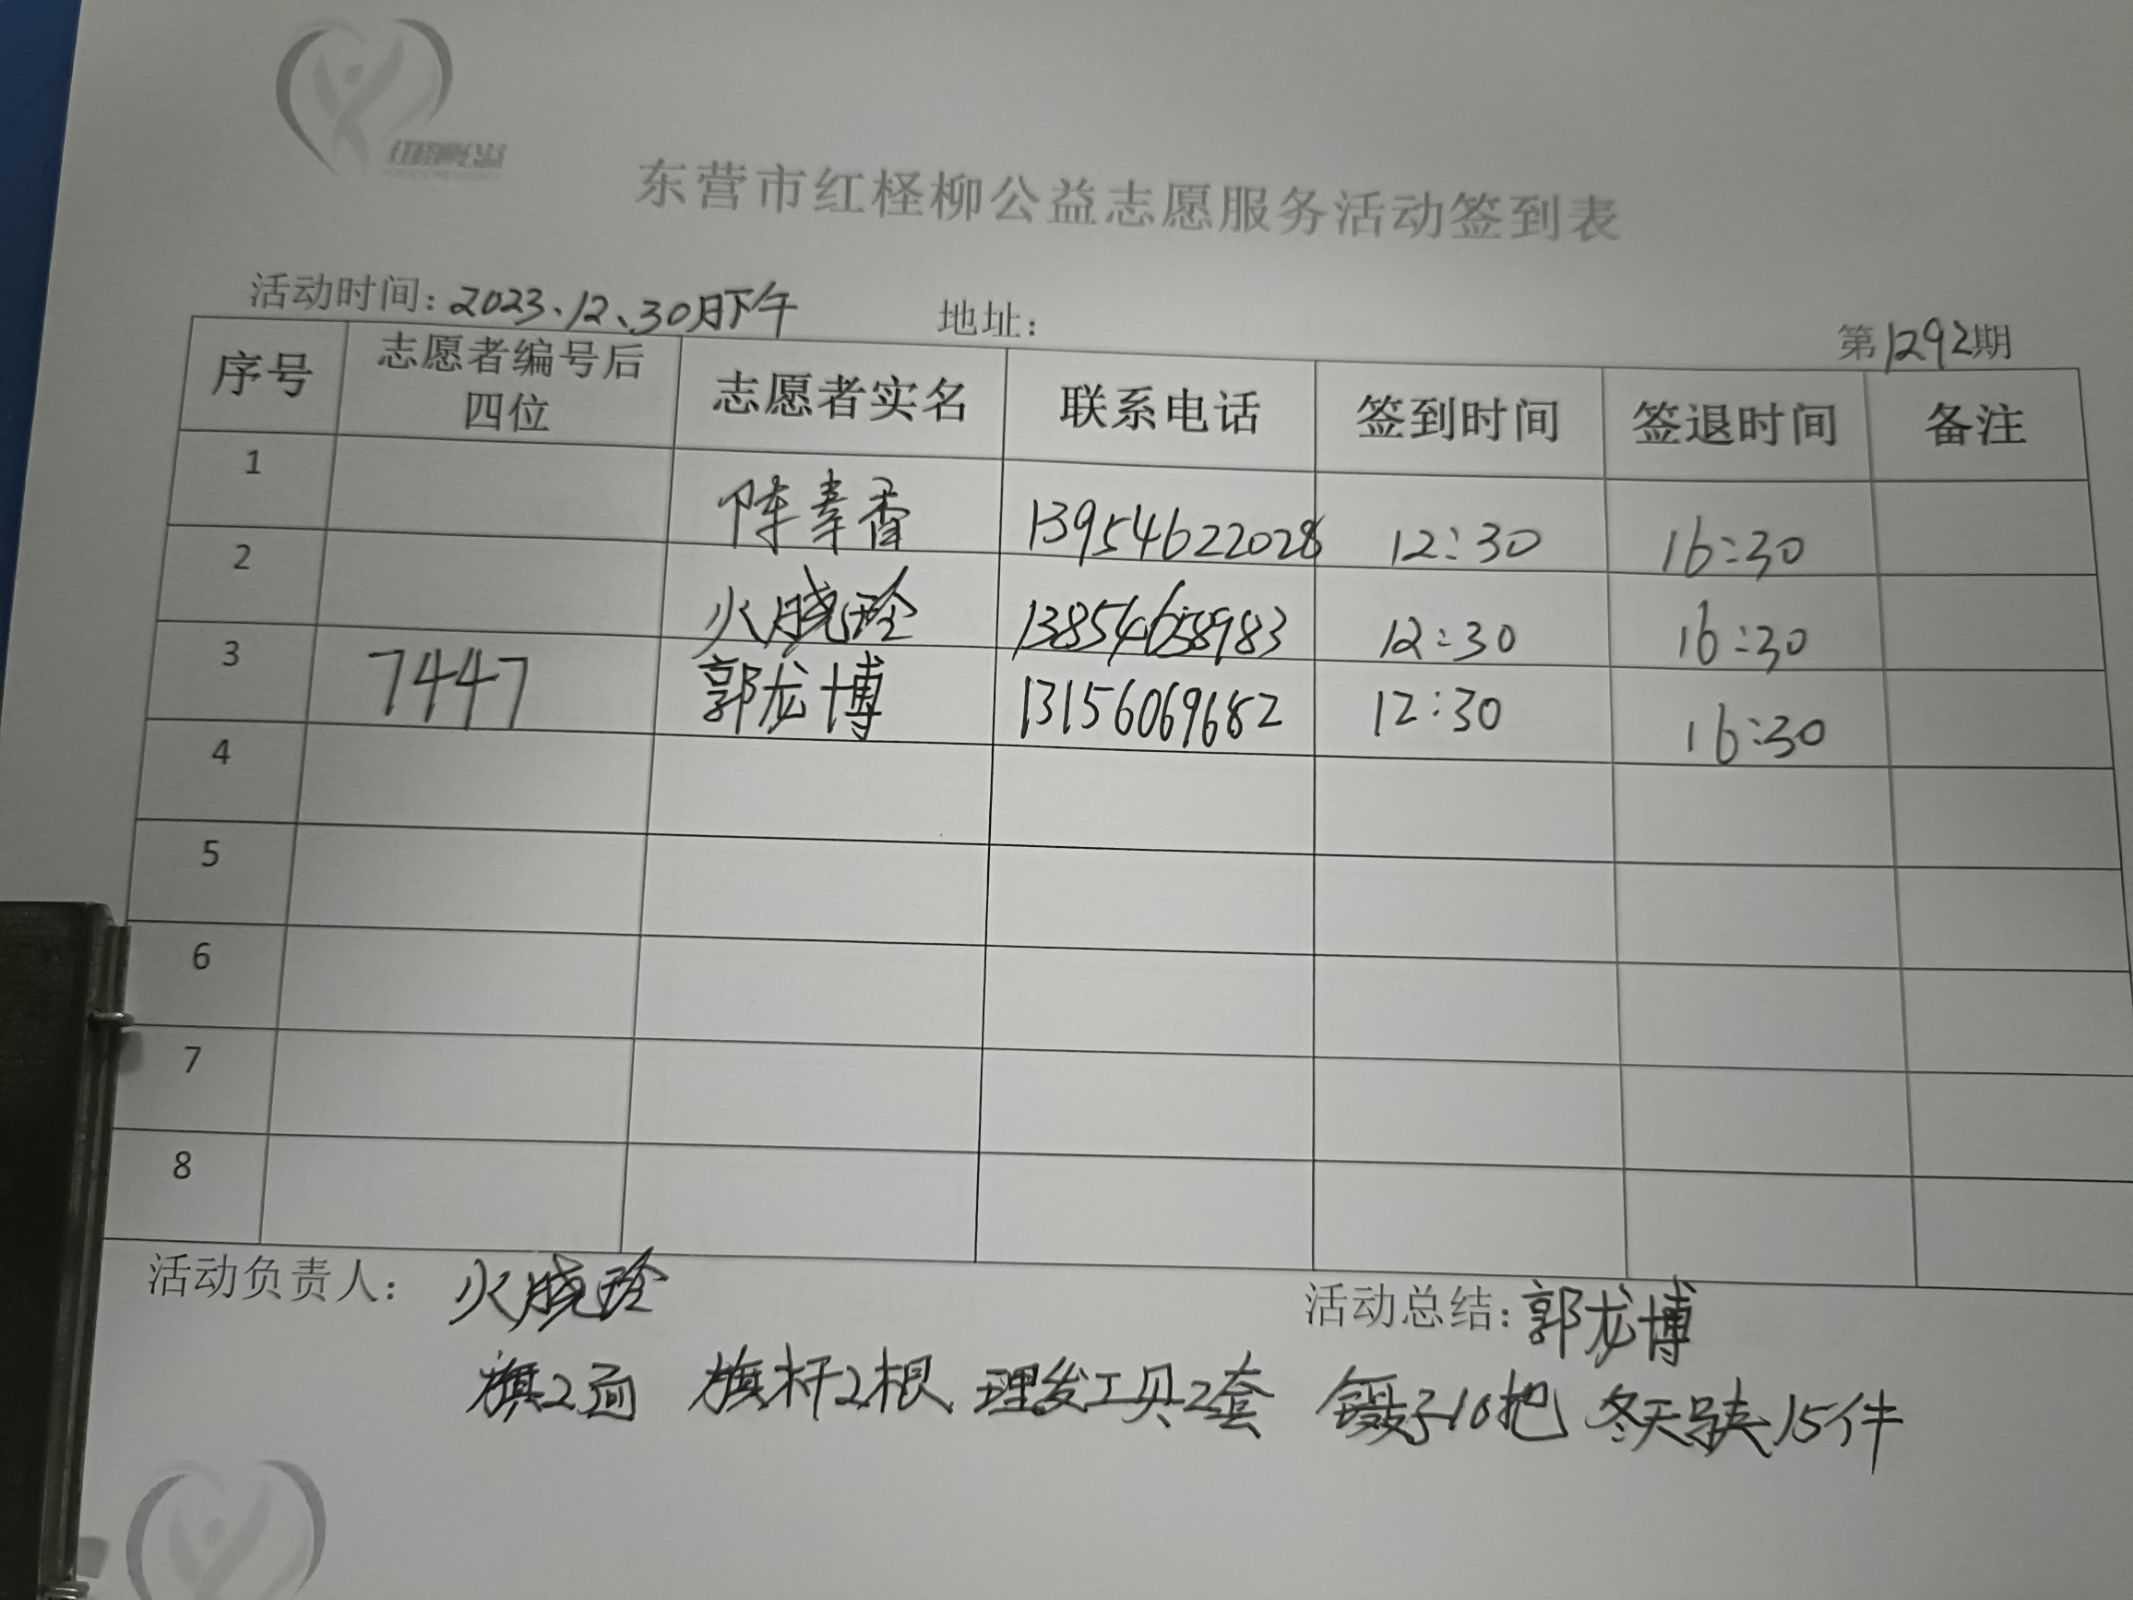 东营市红柽柳公益志愿服务活动签到表
活动时间：2023、12、30日下午 地址： 第1292期
序号 志愿者编号后四位 志愿者实名 联系电话 签到时间 签退时间 备注
1 陈幸香 13954622028 12:30 16:30
2 火晓玲 13854658983 12:30 16:30
3 7447 郭龙博 13156069682 12:30 16:30
4
5
6
7
8
活动负责人： 火晓玲 活动总结：郭龙博
旗2面 旗杆2根 理发工具2套 镊子10把 冬天马夹15件